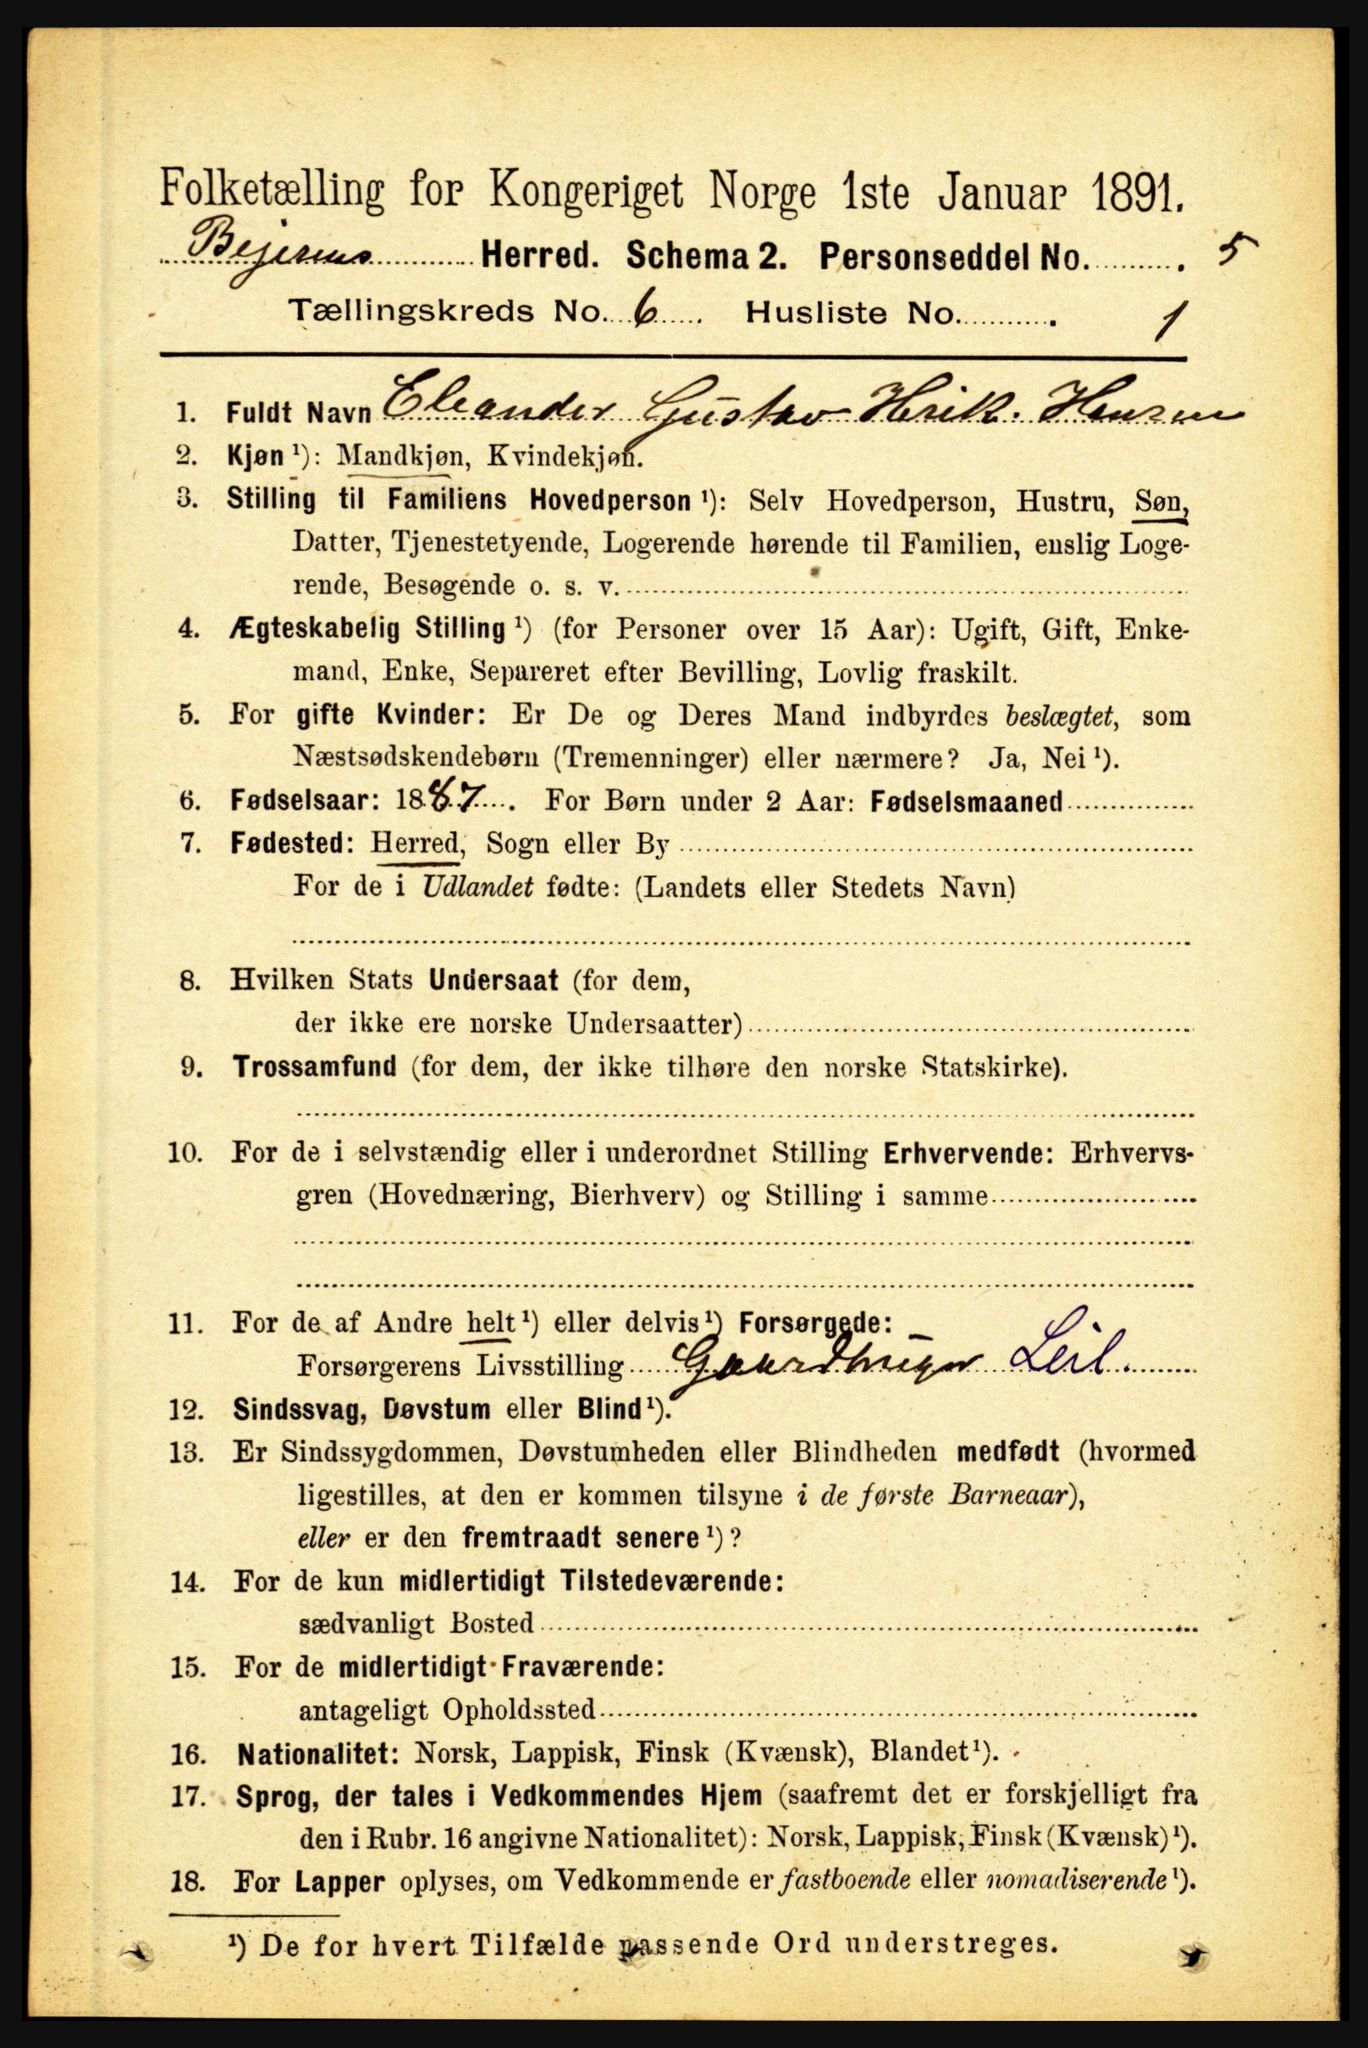 Folketælling for Kongeriget Norge 1ste Januar 1891.
Bejerens Herred. Schema 2. Personseddel No. 5
Tællingskreds No. 6. Husliste No. 1
1. Fuldt Navn Eleander Gustav Herik. Hansen
2. Kjøn ¹): Mandkjøn, Kvindekjøn.
3. Stilling til Familiens Hovedperson ¹): Selv Hovedperson, Hustru, Søn,
Datter, Tjenestetyende, Logerende hørende til Familien, enslig Loge-
rende, Besøgende o. s. v.
4. Ægteskabelig Stilling ¹) (for Personer over 15 Aar): Ugift, Gift, Enke-
mand, Enke, Separeret efter Bevilling, Lovlig fraskilt.
5. For gifte Kvinder: Er De og Deres Mand indbyrdes beslægtet, som
Næstsødskendebørn (Tremenninger) eller nærmere? Ja, Nei ¹).
6. Fødselsaar: 1887. For Børn under 2 Aar: Fødselsmaaned
7. Fødested: Herred, Sogn eller By
For de i Udlandet fødte: (Landets eller Stedets Navn)
8. Hvilken Stats Undersaat (for dem,
der ikke ere norske Undersaatter)
9. Trossamfund (for dem, der ikke tilhøre den norske Statskirke).
10. For de i selvstændig eller i underordnet Stilling Erhvervende: Erhvervs-
gren (Hovednæring, Bierhverv) og Stilling i samme
11. For de af Andre helt ¹) eller delvis ¹) Forsørgede:
Forsørgerens Livsstilling Gaardbruger Leil.
12. Sindssvag, Døvstum eller Blind ¹).
13. Er Sindssygdommen, Døvstumheden eller Blindheden medfødt (hvormed
ligestilles, at den er kommen tilsyne i de første Barneaar),
eller er den fremtraadt senere ¹)?
14. For de kun midlertidigt Tilstedeværende:
sædvanligt Bosted
15. For de midlertidigt Fraværende:
antageligt Opholdssted
16. Nationalitet: Norsk, Lappisk, Finsk (Kvænsk), Blandet ¹).
17. Sprog, der tales i Vedkommendes Hjem (saafremt det er forskjelligt fra
den i Rubr. 16 angivne Nationalitet): Norsk, Lappisk, Finsk (Kvænsk) ¹).
18. For Lapper oplyses, om Vedkommende er fastboende eller nomadiserende ¹).
¹) De for hvert Tilfælde passende Ord understreges.